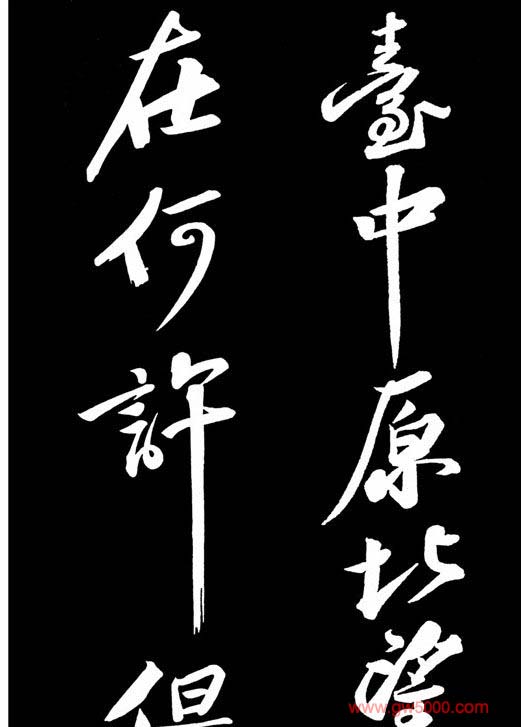 臺中原北望
在何許但
www.gw5000.com